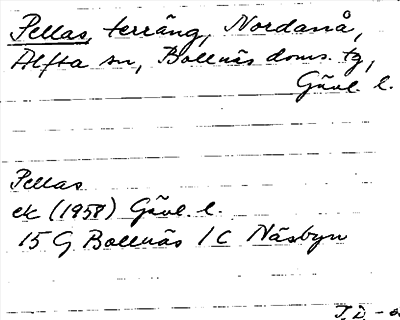 Pellas, terräng, Nordanå,
Alfta sn, Bollnäs doms. tg,
Gävl. l.
Pellas
ek (1958) Gävl. l.
15 G Bollnäs 1 C Näsbyn